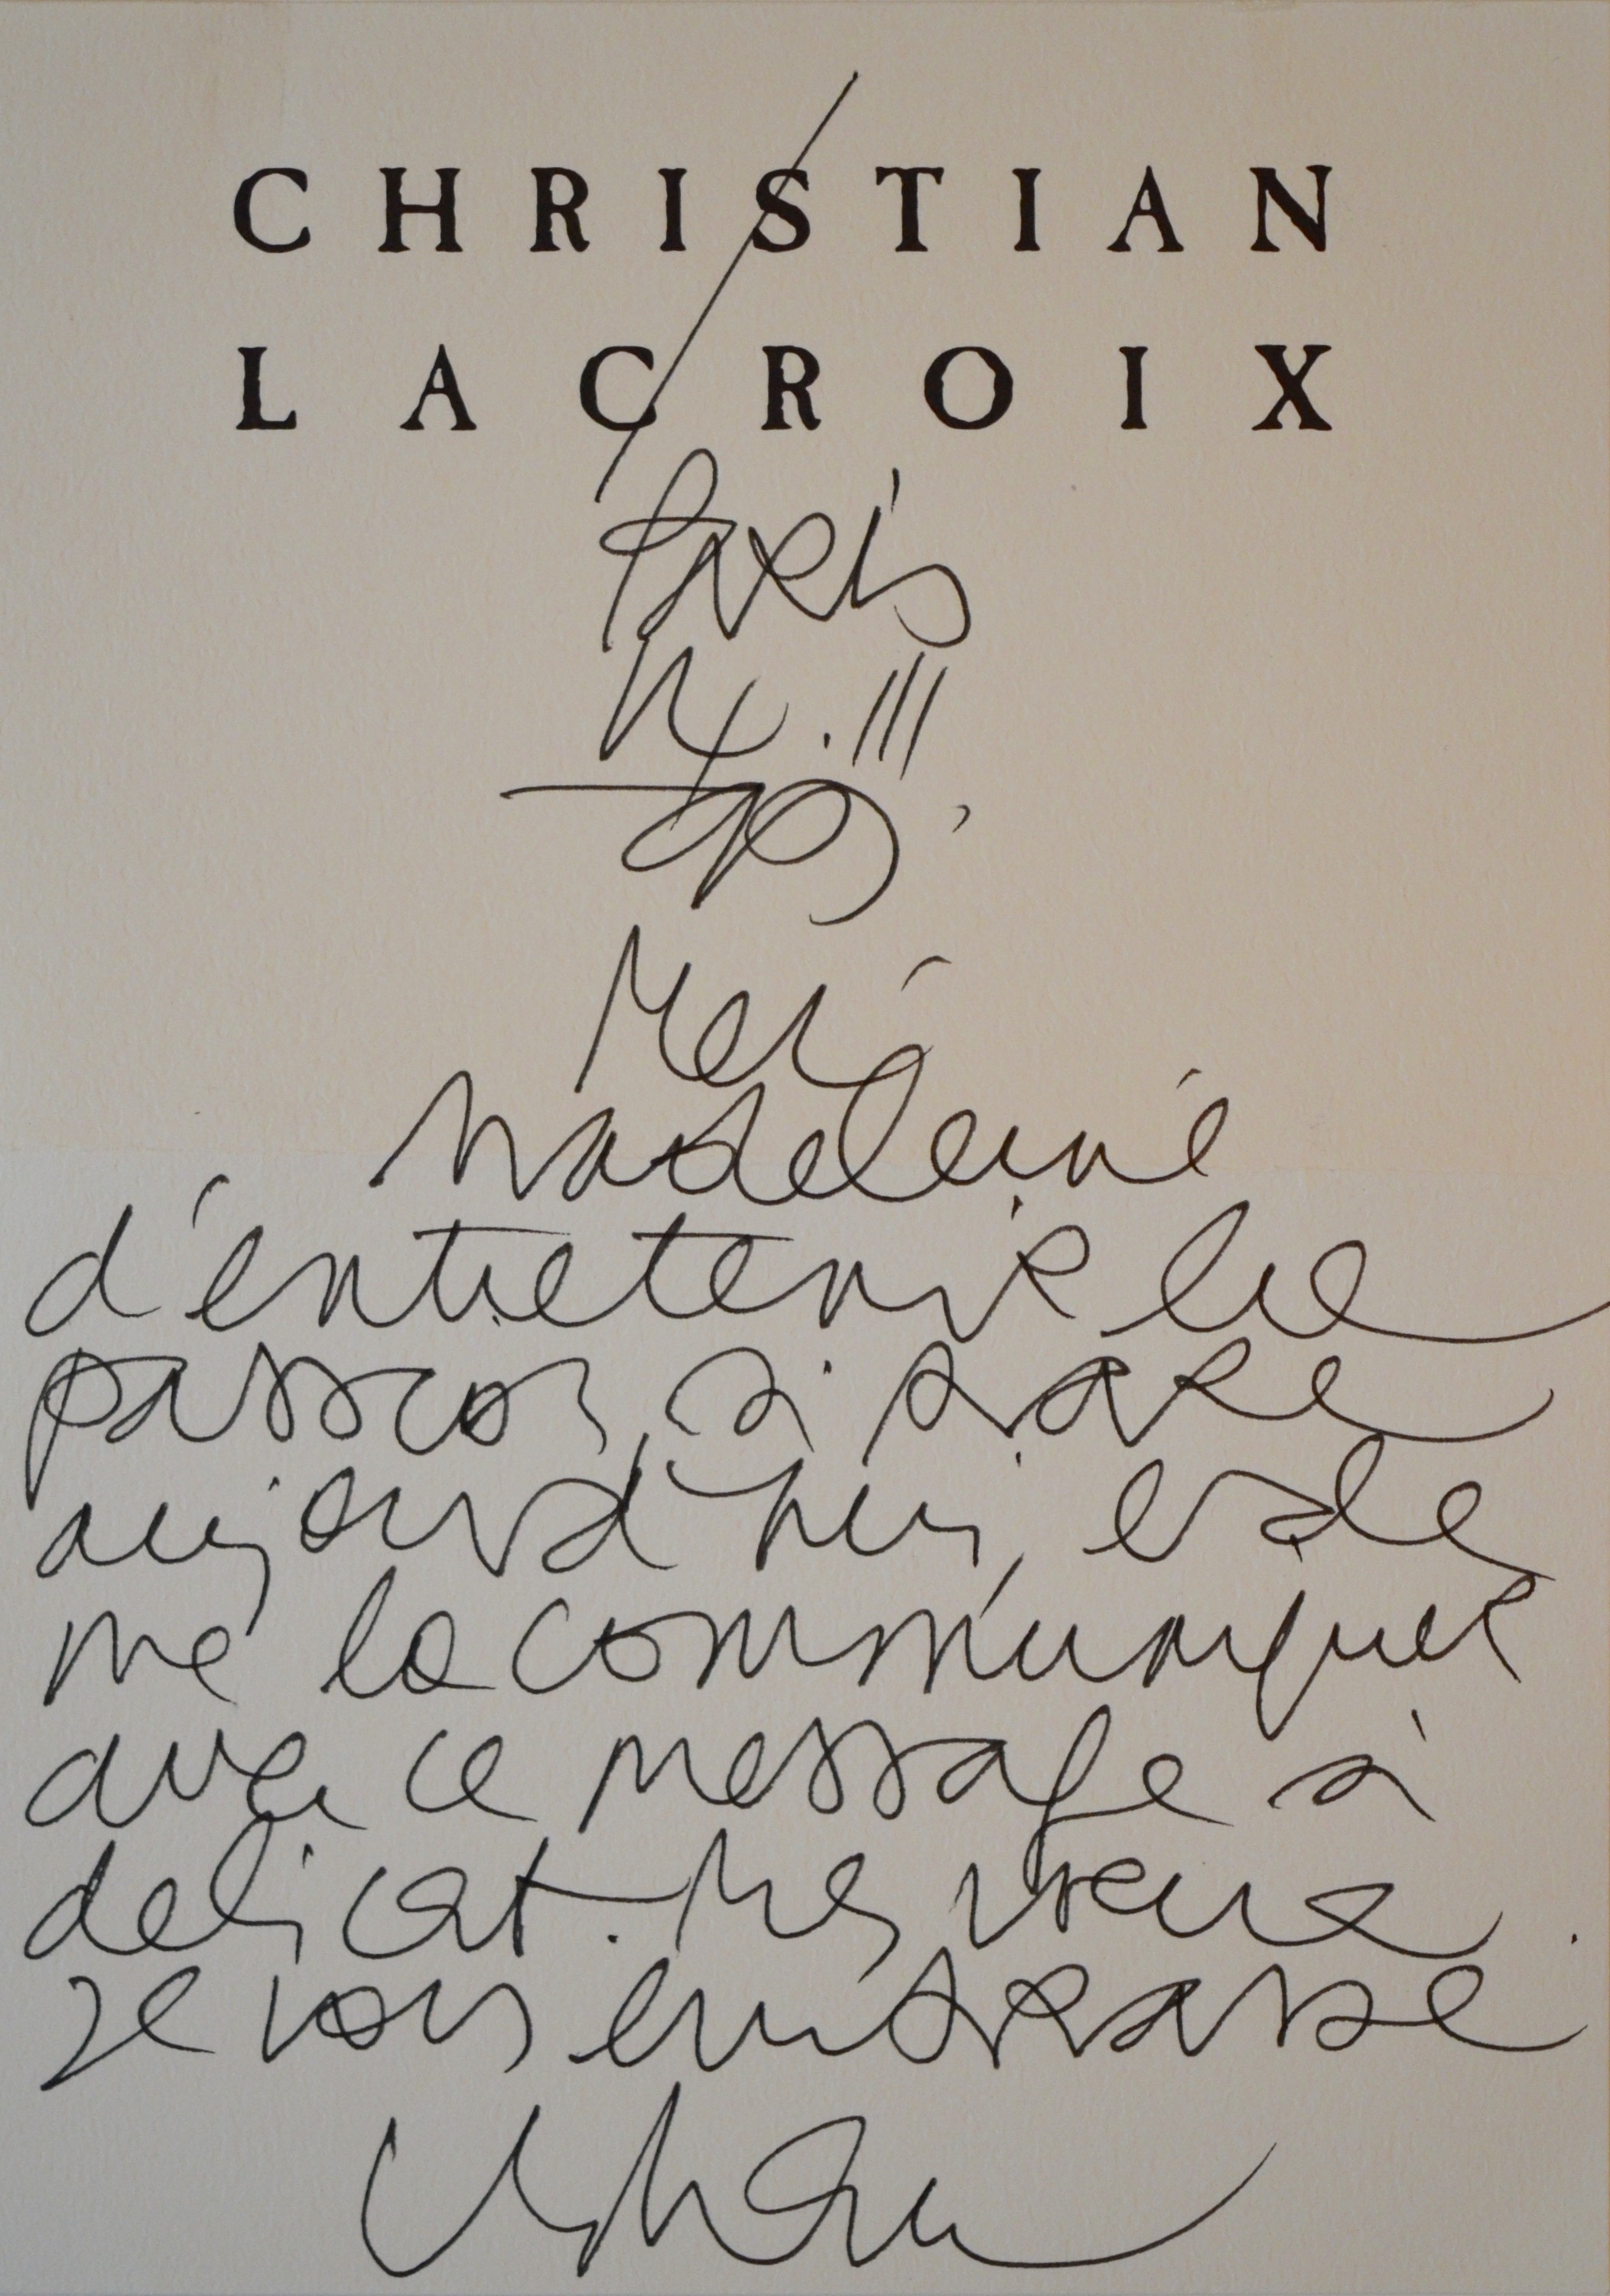 CHRISTIAN
LACROIX
Paris
Merci
Madeleine
d'entretenir une
passion, si rare
aujourd'hui, et de
me la communiquer
avec ce message si
délicat.
Je vous embrasse